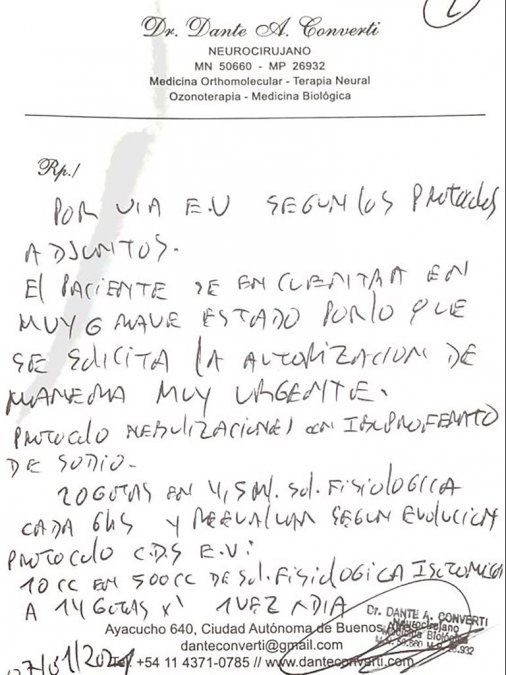 2
Dr. Dante A. Converti
NEUROCIRUJANO
MN 50660 - MP 26932
Medicina Orthomolecular - Terapia Neural
Ozonoterapia - Medicina Biológica
Rp./
POR VIA E.V SEGUN LOS PROTOCOLOS
ADJUNTOS.
El PACIENTE SE ENCUENTRA EN
MUY GRAVE ESTADO POR LO QUE
SE SOLICITA LA AUTORIZACION DE
MANERA MUY URGENTE.
PROTOCOLO NEBULIZACIONES CON IBUPROFENATO
DE SODIO.
20 GOTAS EN 4,5 Ml. Sol. FISIOLOGICA
CADA 6HS Y REEVALUAR SEGUN EVOLUCION
PROTOCOLO C.D.S E.V:
10 CC EN 500 CC DE Sol. FISIOLOGICA ISOTONICA
A 14 GOTAS X' 1 VEZ X DIA
Dr. DANTE A. CONVERTI
Neurocirujano
Medicina Biológica
M.N. 50.660 M.P. 26.932
Ayacucho 640, Ciudad Autónoma de Buenos Aires
danteconverti@gmail.com
07/01/2021 Tel. +54 11 4371-0785 // www.danteconverti.com